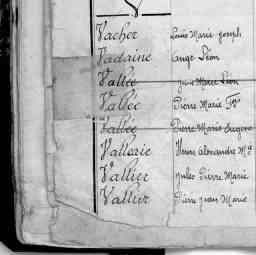 Vacher Louis Marie Joseph
Vadaine Ange Léon
Vallée Jean Marie Léon
Vallée Pierre Marie
Vallée Pierre Marie Eugène
Vallerie Alexandre
Vallier Jules Pierre Marie
Vallier Pierre Jean Marie